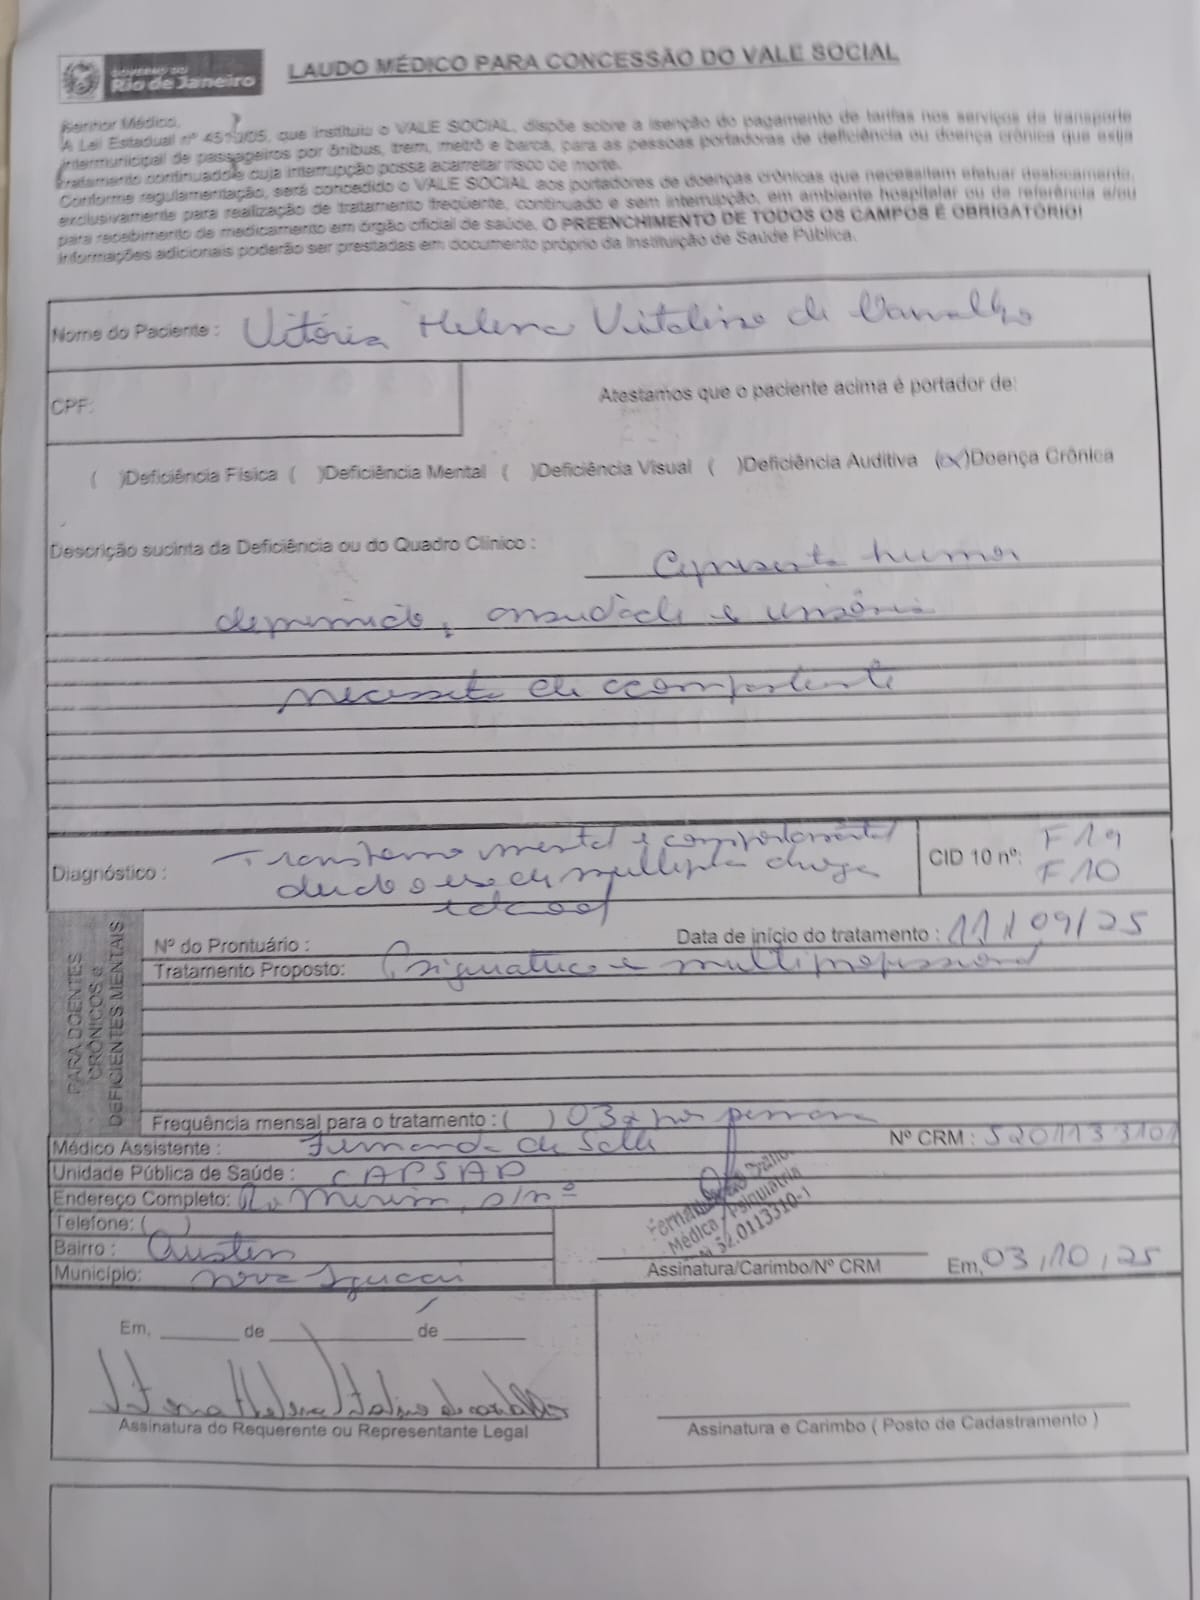 GOVERNO DO
Rio de Janeiro
LAUDO MÉDICO PARA CONCESSÃO DO VALE SOCIAL
Senhor Médico,
A Lei Estadual nº 4510/05, que instituiu o VALE SOCIAL, dispõe sobre a isenção do pagamento de tarifas nos serviços de transporte
intermunicipal de passageiros por ônibus, trem, metrô e barca, para as pessoas portadoras de deficiência ou doença crônica que exija
tratamento continuado e cuja interrupção possa acarretar risco de morte.
Conforme regulamentação, será concedido o VALE SOCIAL aos portadores de doenças crônicas que necessitam efetuar deslocamento,
exclusivamente para realização de tratamento freqüente, continuado e sem interrupção, em ambiente hospitalar ou de referência e/ou
para recebimento de medicamento em órgão oficial de saúde. O PREENCHIMENTO DE TODOS OS CAMPOS É OBRIGATÓRIO!
Informações adicionais poderão ser prestadas em documento próprio da Instituição de Saúde Pública.
Nome do Paciente : Vitória Helena Vitalino de Carvalho
CPF:
Atestamos que o paciente acima é portador de:
( )Deficiência Física ( )Deficiência Mental ( )Deficiência Visual ( )Deficiência Auditiva (x)Doença Crônica
Descrição sucinta da Deficiência ou do Quadro Clínico : Apresenta humor
deprimido, ansiedade e insônia
necessita de acompanhante
Diagnóstico : Transtorno mental e comportamental
devido o uso de multiplas drogas
e álcool
CID 10 nº: F19
F10
PARA DOENTES
CRÔNICOS e
DEFICIENTES MENTAIS
Nº do Prontuário :
Data de início do tratamento : 11/09/25
Tratamento Proposto: Psiquiatrico e multiprofissional
Frequência mensal para o tratamento : ( ) 03x por semana
Médico Assistente : Fernanda de Salles
Nº CRM : 5201133101
Unidade Pública de Saúde : CAPSAD
Endereço Completo: R. Mirim, s/nº
Telefone: ( )
Bairro : Austin
Município: Nova Iguaçu
Médica / Psiquiatria
52.0113310-1
Assinatura/Carimbo/Nº CRM
Em, 03/10/25
Em, ______ de ____________ de ______
Vitoria Helena Vitalino de carvalho
Assinatura do Requerente ou Representante Legal
Assinatura e Carimbo ( Posto de Cadastramento )